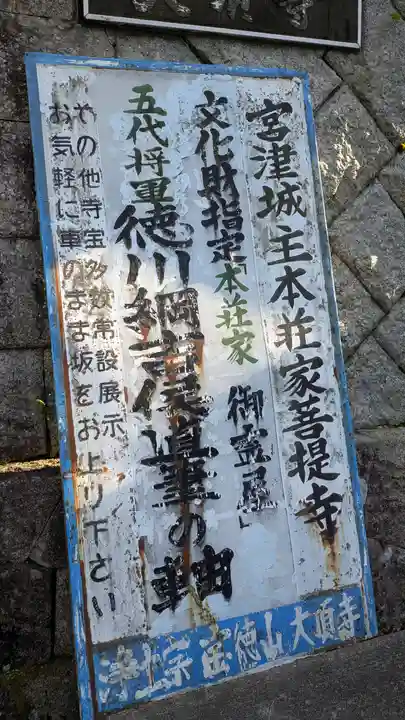 宮津城主本荘家菩提寺
文化財指定「本荘家 御霊屋」
五代将軍徳川綱吉候直筆の軸
その他寺宝多数常設展示
お気軽に車のまま坂をお上り下さい
浄土宗 宝徳山大頂寺